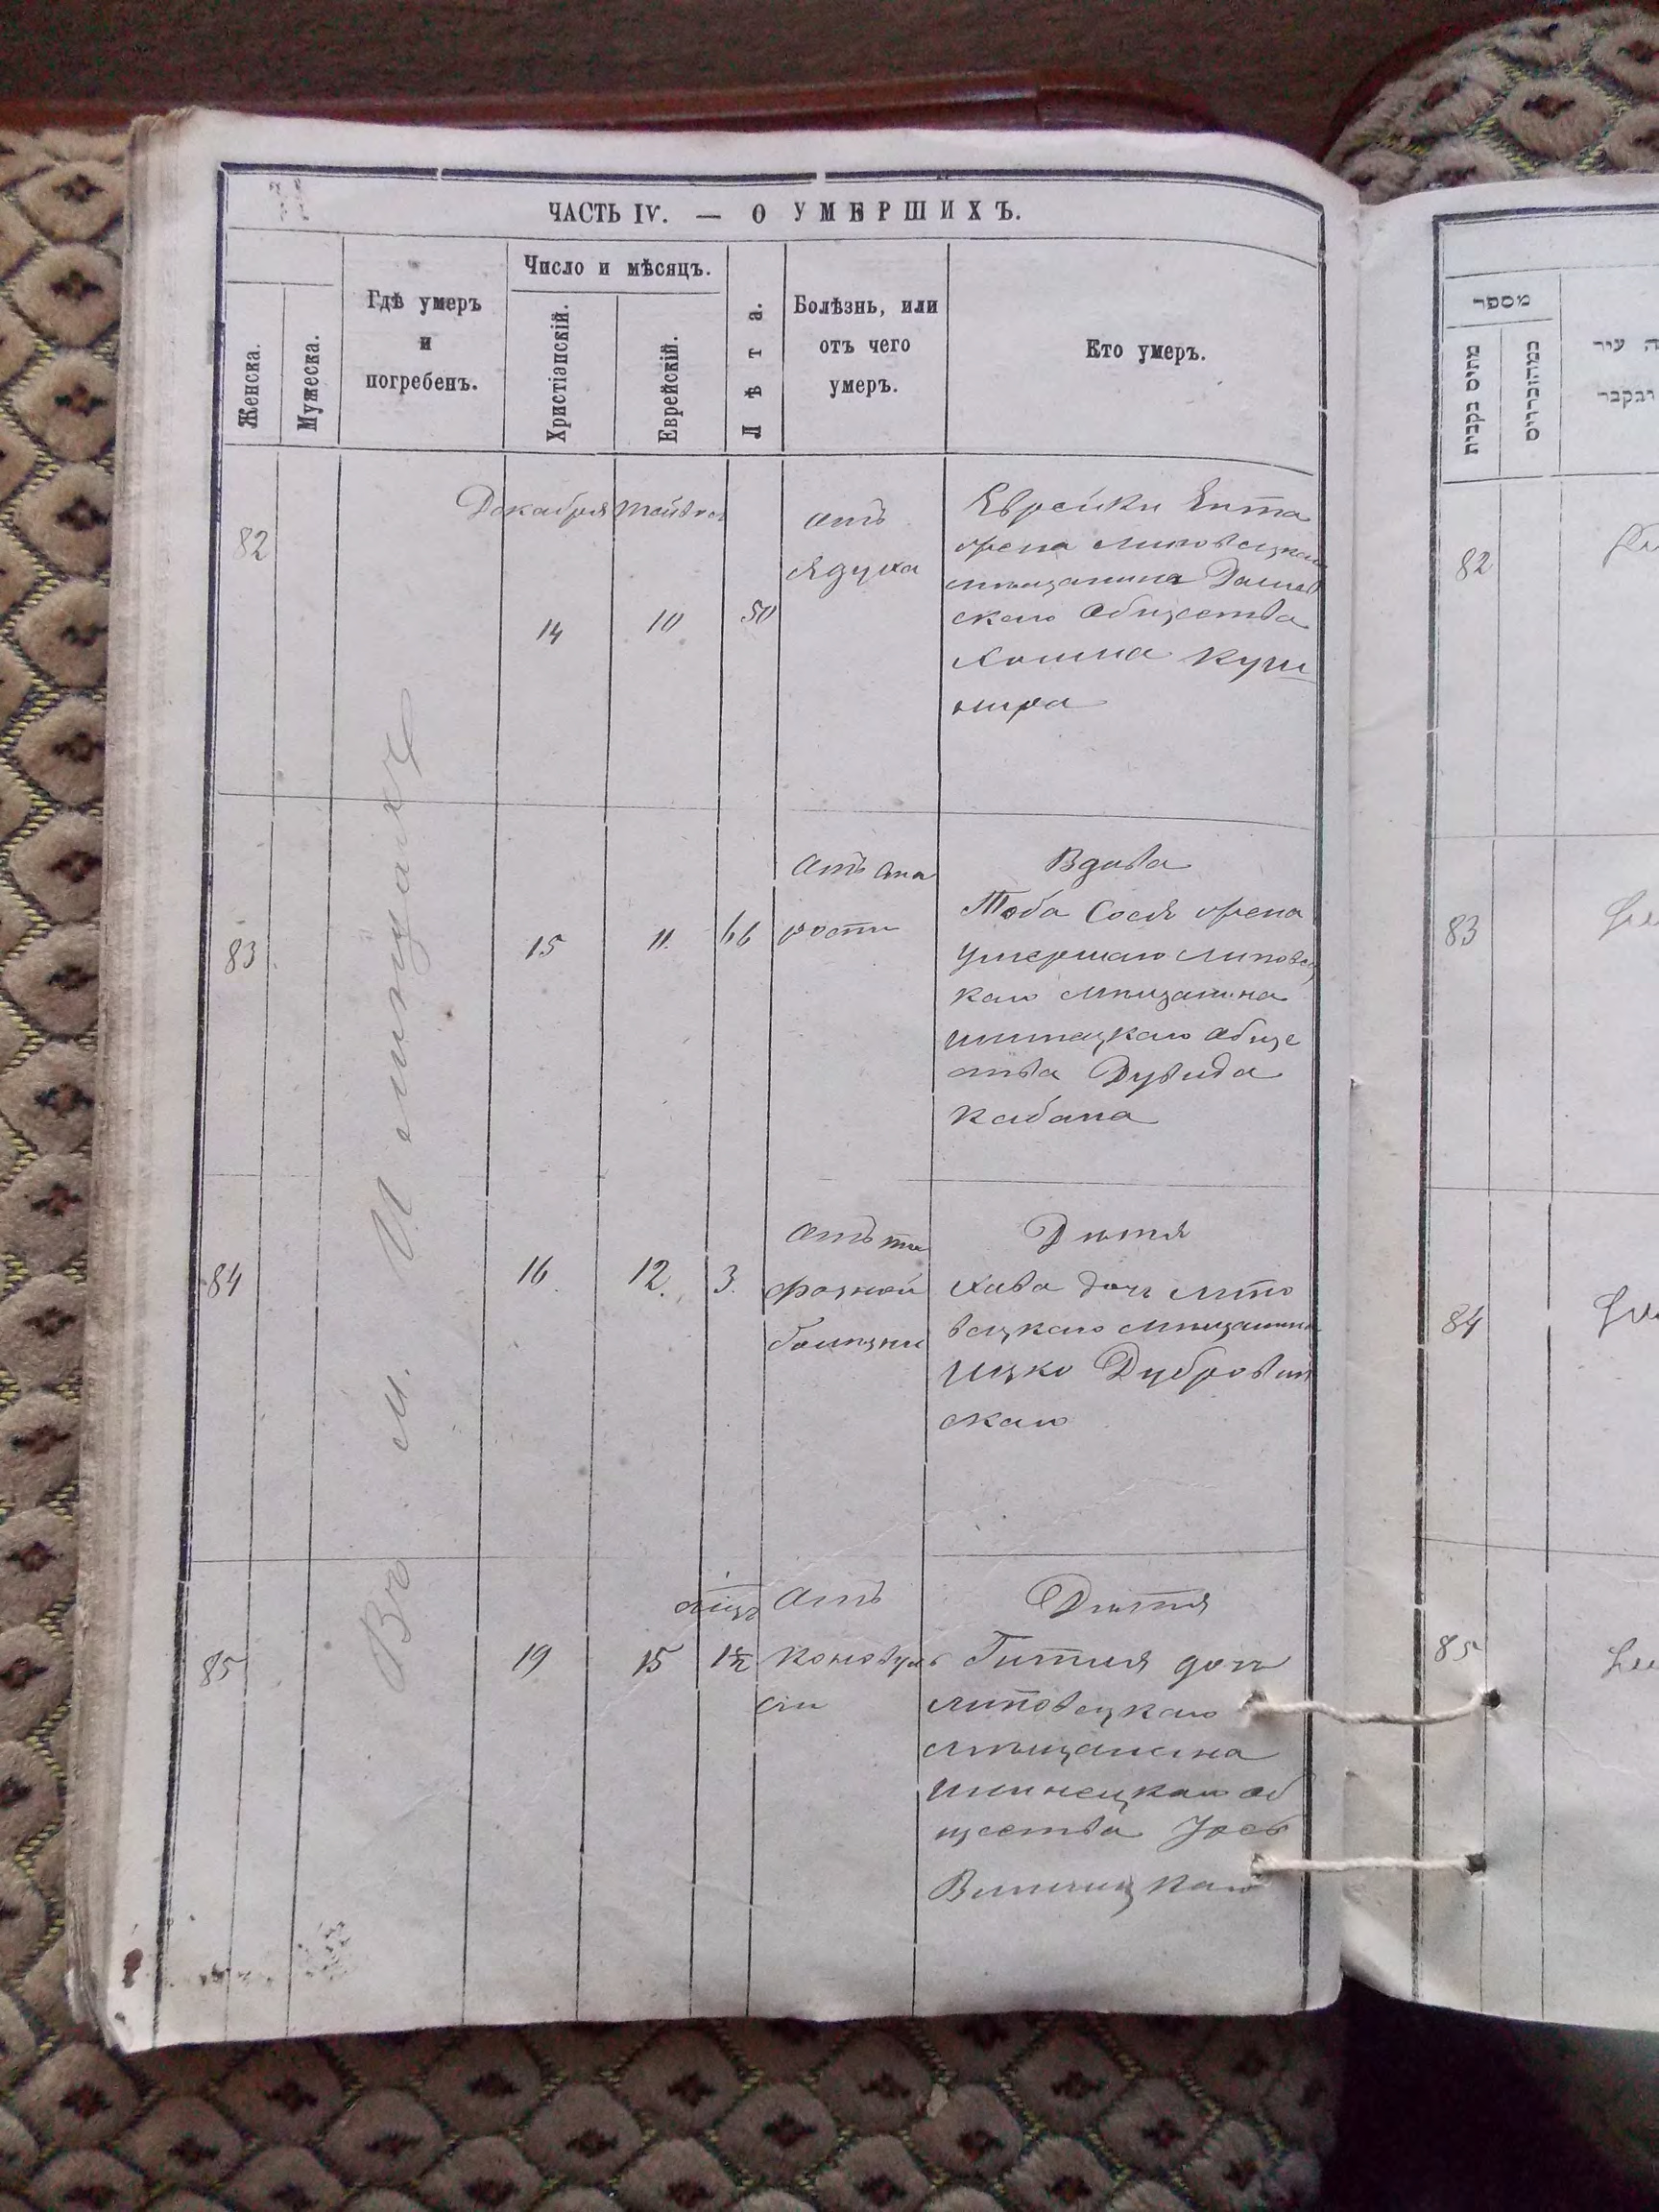 ЧАСТЬ IV. — О УМЕРШИХЪ.
Женска.
Мужеска.
Гдѣ умеръ
и
погребенъ.
Число и мѣсяцъ.
Христіанскій.
Еврейскій.
Лѣта.
Болѣзнь, или
отъ чего
умеръ.
Кто умеръ.
Въ м. Илинцахъ
Декабря
82
14
10
50
отъ
ядуха
Еврейки Ента
жена Липовецкаго
мѣщанина Дашев
скаго общества
Хаима Куш
нира
83
15
11.
66
Отъ ста
рости
Вдова
Тоба Сося жена
умершаго Липовец
каго мѣщанина
общe
ства Дувида
Кабана
84
16
12.
3.
Отъ ти
фозной
болѣзни
Дитя
Хава дочь Липо
вецкаго мѣщанина
Ицко Дубровин
скаго
85
19
15
1½
Отъ
конвуль
сіи
Дитя
Гитля дочь
Липовецкаго
мѣщанина
Илинецкаго об
щества Іось
Винницкаго
מספר
נקבות
זכרים
עיר
ונקבר
82
83
84
85